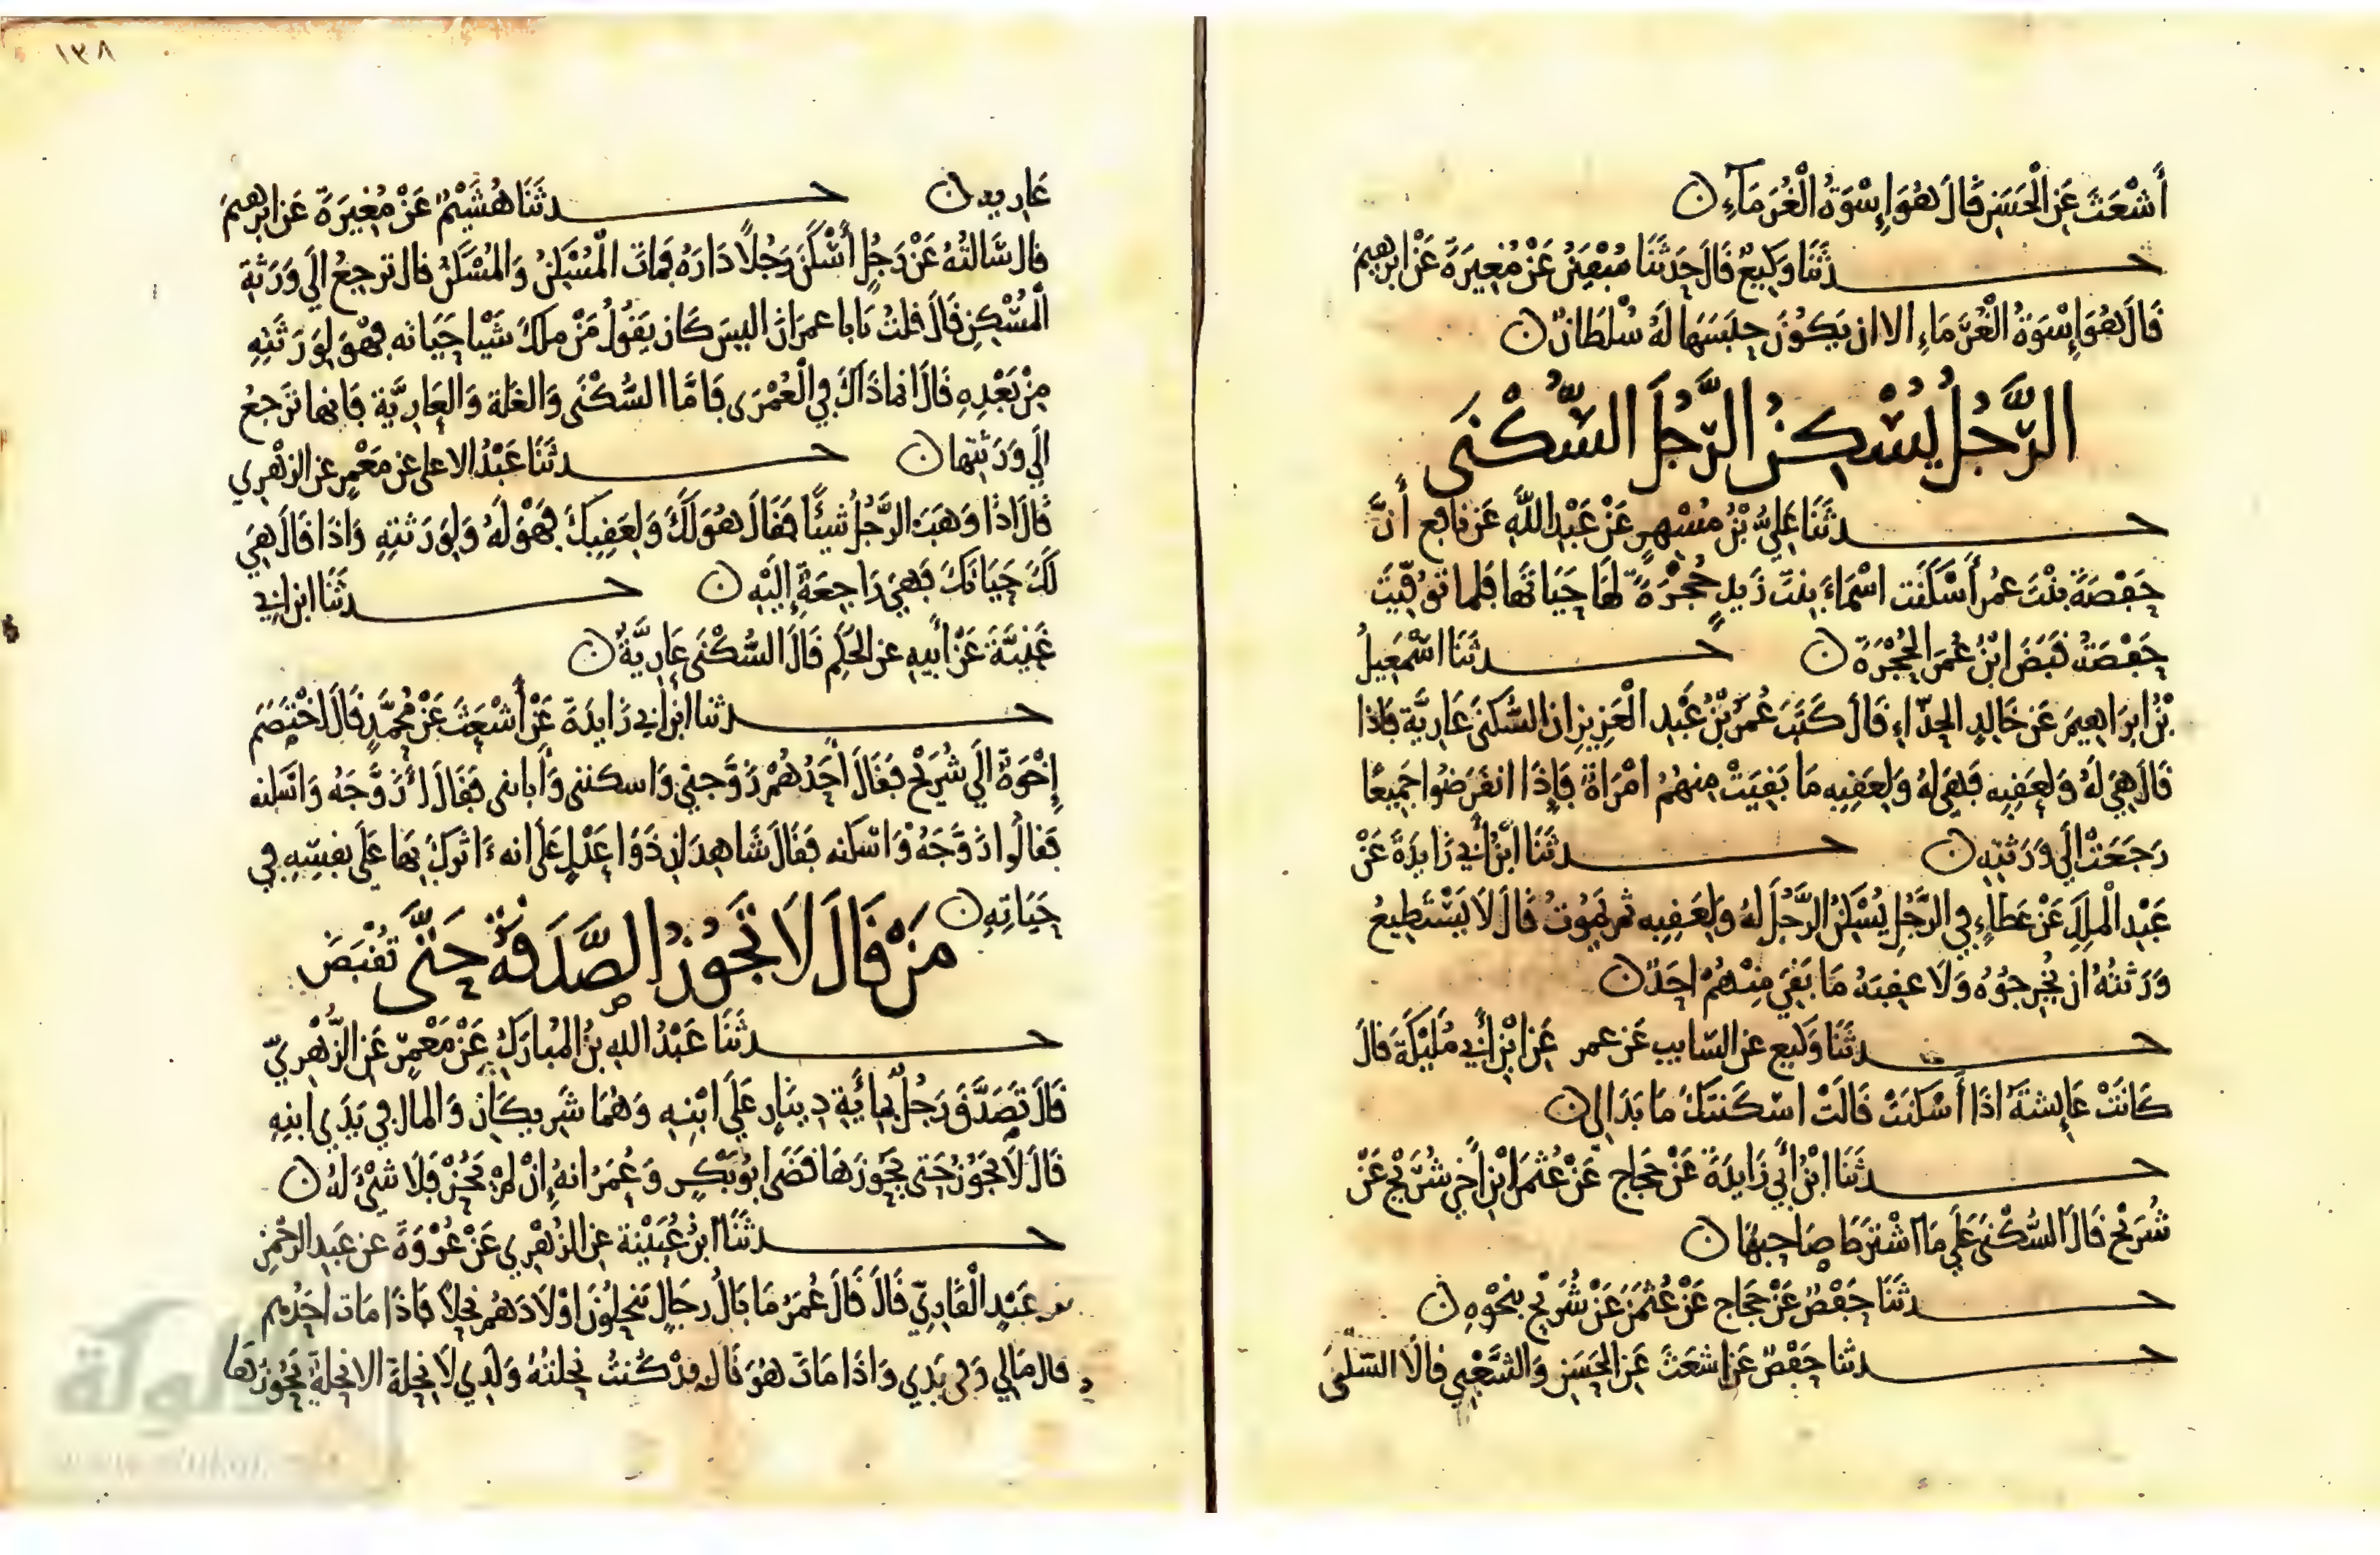 أَشْعَثَ عَنِ الْحَسَنِ قَالَ هُوَ إِسْوَةُ الْغُرَمَاءِ ن
حدثَنَا وَكِيعٌ قَالَ حَدَثَنَا عَنْ مُغِيرَةَ عَنْ ابرهيم
قَالَ هُوَ إِسْوَةُ الْغُرَمَاءِ الا ان يَكُونَ حَبَسَهَا لَهُ سُلْطَانٌ ن
الرَّجُلُ يُسْكِنُ الرَّجُلَ السُّكْنَى
حدثَنَا عَلِيُّ بْنُ مُسْهِرٍ عَنْ عَبْدِ اللَّهِ عَنْ نَافِعٍ أَنَّ
حَفْصَةَ بِنْتَ عُمَرَ أَسْكَنَت اسْمَاءَ بِنْتَ زَيدٍ حُجْرَةً لَهَا حَيَاتَهَا فَلما تُوُفِّيَتْ
حَفْصَةُ قَبَضَ ابْنُ عُمَرَ الْحُجْرَةَ ن حدثَنَا اسْمَعِيلُ
بْنُ ابرَاهِيمَ عَنْ خَالِدٍ الحذّاءِ قَالَ كَتَبَ عُمَرُ بْنُ عَبْدِ الْعَزِيزِ ان السُّكنَى عَارِيَّة فَاذا
قَالَ هِيَ لَهُ وَلِعَقِبِهِ فَهِيَ لَهُ وَلِعَقِبِهِ مَا بَقِيَتْ مِنهُمُ امْرَاةٌ فَإِذَا انقَرَضُوا جَمِيعًا
رَجَعَتْ الَي وَرَثَتِهِ ن حدثَنَا ابْنُ أَبِي زَايِدَةَ عَنْ
عَبْدِ الْمَلِكِ عَنْ عَطَاءٍ فِي الرَّجُلِ يُسْكِنُ الرَّجُلَ لهُ وَلِعَقِبِهِ ثم يَمُوتُ قَالَ لَا يَسْتَطِيعُ
وَرَثَتُهُ ان يُخْرِجُوهُ وَلَا عقِبَهُ مَا بَقِيَ مِنْهُمْ احَدٌ ن
حدثَنَا وَكيع عن السّايبِ عَن عمر عَنِ ابْنِ أَبِي مُلَيْكَةَ قَالَ
كَانَتْ عَايِشَةُ اذَا أَسْكَنَتْ قَالَتْ اسْكَنتكَ مَا بَدَا لِي ن
حدثَنَا ابْنُ أَبِي زَايِدَةَ عَنْ حَجَّاجٍ عَنْ عُثْمَنَ ابْنِ أَخِي شُرَيْحٍ عَنْ
شُرَيْحٍ قَالَ السُّكْنَى عَلَي مَا اشْتَرَطَ صَاحِبُهَا ن
حدثَنَا حَفْصٌ عَنْ حَجَّاجٍ عَنْ عُثْمَنَ عَنْ شُرَيْحٍ بِنَحْوِهِ ن
حدثنا حَفْصٌ عَنْ اشعَثَ عَنِ الحَسَنِ وَالشَّعْبِيِ قَالَا السّكْنَى
١٣٨
عَارِيه ن حدثَنَا هُشَيْمٌ عَنْ مُغِيرَةَ عَن ابرهيمَ
قال سَالتُهُ عَنْ رَجُلٍ أَسْكَنَ رَجُلًا دَارَهُ فَمَاتَ الْمُسْكِنُ وَالمُسْكَنُ قال تَرجِعُ الَي وَرَثَةِ
الْمُسْكِنِ قَالَ قلتُ يَابا عمرَانَ اليسَ كَانَ يَقُولُ مَنْ مَلكَ شَيْا حَيَاته فهْوَ لِوَرَثَتِهِ
مِنْ بَعْدِهِ قَالَ انما ذَاكَ فِي الْعُمْرَى فَامَّا السُّكْنَى وَالغَلّة وَالْعَارِيَّة فَانها تَرْجعُ
الَي وَرَثَتِهَا ن حدثَنَا عَبْدُ الاعلى عن مَعْمَرٍ عن الزهري
قَالَ اذا وَهَبَ الرَّجُلُ شيئًا فَقَالَ هُوَ لَكَ وَلِعَقِبِكَ فَهْوَ لَهُ وَلِوَرَثَتِهِ وَاذا قَالَ هِيَ
لَكَ حَيَاتَكَ فَهِيَ رَاجِعَة إِلَيْهِ ن حدثَنَا ابن ابِي
غَنِيَّةَ عَنْ أَبِيهِ عن الحَكَمِ قَالَ السُّكْنَى عَارِيَّةٌ ن
حدثنا ابن ابِي زَايِدَةَ عَنْ أَشْعَثَ عَنْ مُحَمَّدٍ قَالَ اخْتَصَمَ
إِخْوَةٌ الَي شُرَيْحٍ فَقَالَ أَحَدُهُمْ زَوَّجَنِي وَاسكننى وَأبانى فَقَالَ ازَوَّجَهُ وَاسَكنه
فَقَالُوا زَوَّجَهُ وَاسْكنه فَقَالَ شَاهِدَانِ ذَوَا عَدْلٍ عَلَى انه ءَاثَرَكَ بِهَا عَلَى نفسِهِ في
حَيَاتِهِ ن
مَنْ قَالَ لَا تَجُوزُ الصَّدَقَةُ حَتَّى تُقْبَضَ
حدثَنَا عَبْدُ اللهِ بنُ المُبَارَكِ عَنْ مَعْمَرٍ عَنِ الزُّهْرِيِّ
قَالَ تَصَدَّقَ رَجُلٌ بِمِائَةِ دِينَارٍ عَلَى ابْنِهِ وَهُمَا شَرِيكَانِ وَالمال في يَدَي ابنِهِ
قَالَ لَا تَجُوزُ حَتى يَحُوزَهَا قَضَى ابُو بَكْرٍ وَعُمَرُ انهُ إِنْ لَمْ يَحُزْ فَلَا شَيْءَ لَهُ ن
حدثَنَا ابْنُ عُيَيْنَة عن الزُهْرِي عَنْ عُرْوَةَ عن عَبدِ الرَّحْمنِ
بن عَبْدٍ الْقَارِيّ قَالَ قَالَ عُمَرُ مَا بَالُ رِجَالٍ يَنْحِلُونَ اوْلَادَهُم نِحَلًا فَاذَا مَات احَدُهم
قال مَالِي وَفي يَدِي وَاذَا مَاتَ هُوَ قَالَ قدْ كُنتُ نَحَلتُهُ وَلَدِي لَا نِحْلَةَ الا نِحْلَةً يَحُوزُهَا
الألوكة